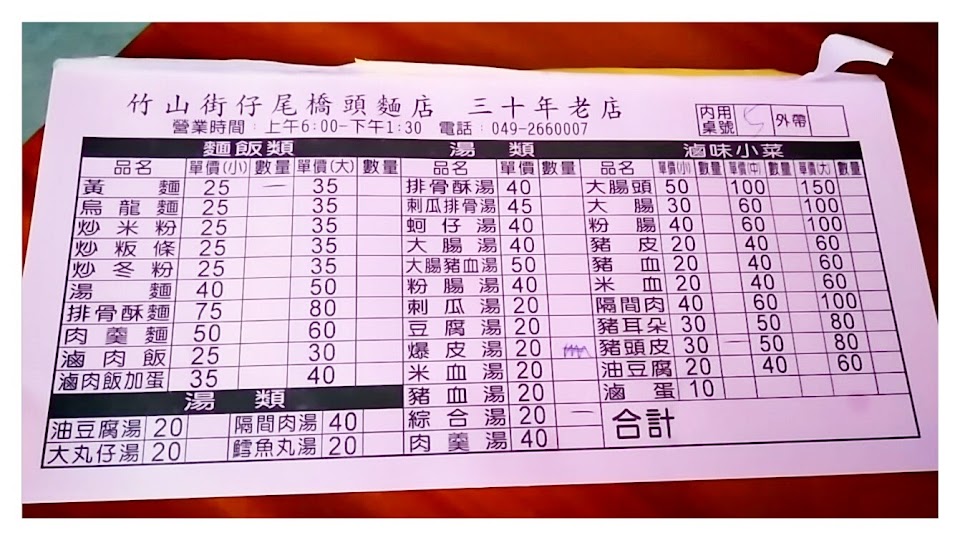 竹山街仔尾橋頭麵店 三十年老店
營業時間:上午6:00-下午1:30 電話:049-2660007
內用桌號 5 外帶
麵飯類
品名 單價(小) 數量 單價(大) 數量
黃麵 25 一 35
烏龍麵 25 35
炒米粉 25 35
炒粄條 25 35
炒冬粉 25 35
湯麵 40 50
排骨酥麵 75 80
肉羹麵 50 60
滷肉飯 25 30
滷肉飯加蛋 35 40
湯類
油豆腐湯 20 隔間肉湯 40
大丸仔湯 20 鱈魚丸湯 20
湯類
品名 單價 數量
排骨酥湯 40
刺瓜排骨湯 45
蚵仔湯 40
大腸湯 40
大腸豬血湯 50
粉腸湯 40
刺瓜湯 20
豆腐湯 20
爆皮湯 20
米血湯 20
豬血湯 20
綜合湯 20 一
肉羹湯 40
滷味小菜
品名 單價(小) 數量 單價(中) 數量 單價(大) 數量
大腸頭 50 100 150
大腸 30 60 100
粉腸 40 60 100
豬皮 20 40 60
豬血 20 40 60
米血 20 40 60
隔間肉 40 60 100
豬耳朵 30 50 80
豬頭皮 30 一 50 80
油豆腐 20 40 60
滷蛋 10
合計